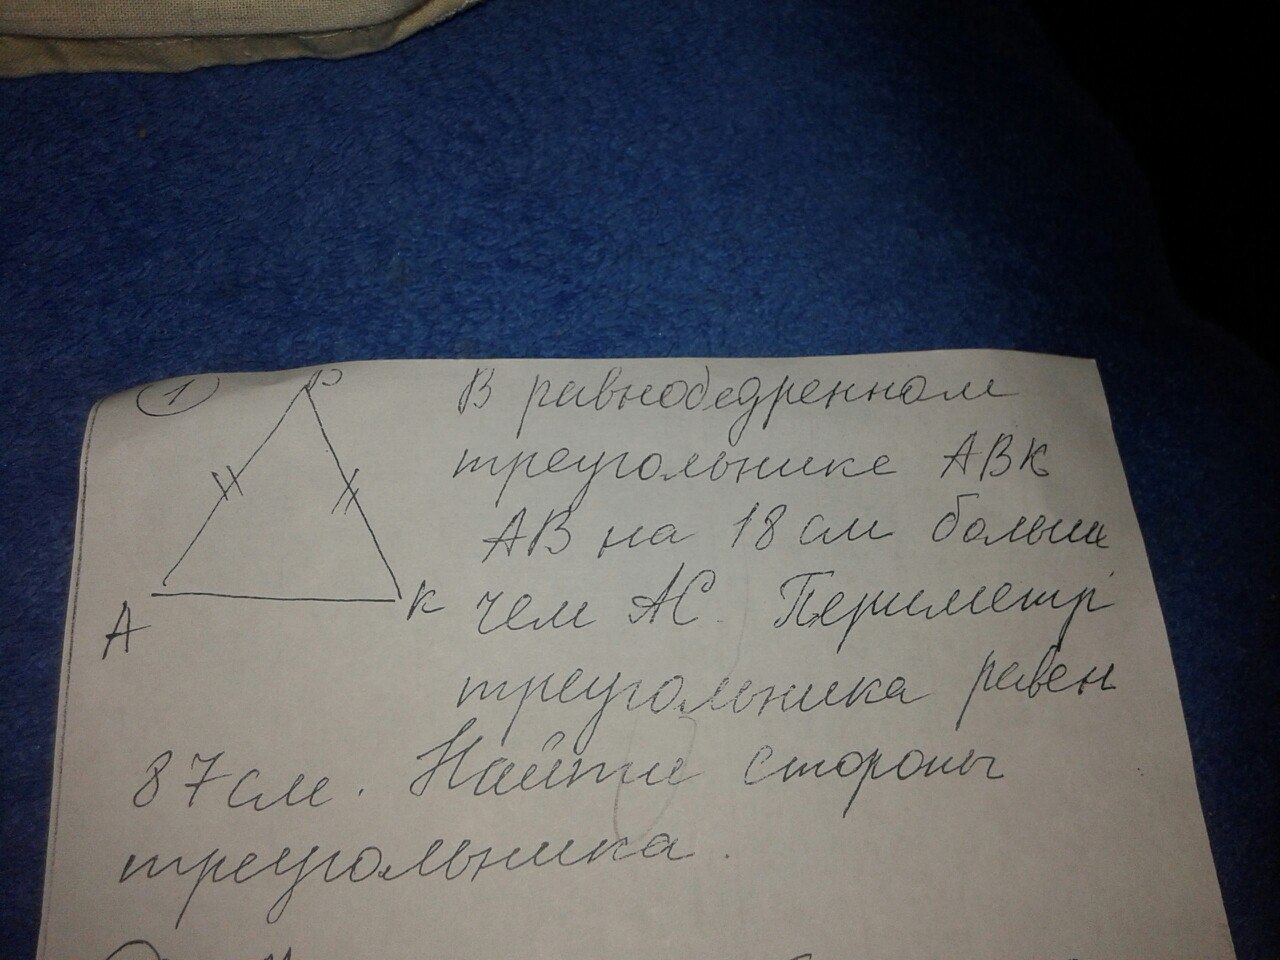 1
В
В равнобедренном
треугольнике АВК
АВ на 18 см больше
чем АС. Периметр
А
К
треугольника равен
87 см. Найти стороны
треугольника.